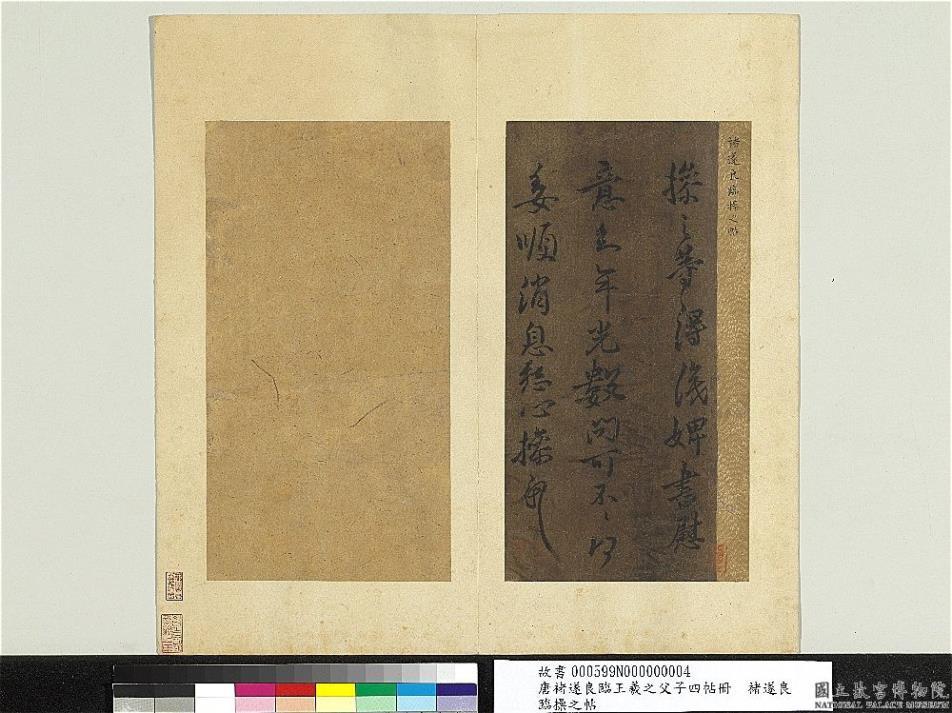 褚遂良臨操之帖
操之等得婢書慰
意年光數問可不〻得
姜順消息懸心操
故書 000599N000000004
唐褚遂良臨王羲之父子四帖冊　褚遂良
臨操之帖
國立故宮博物院
NATIONAL PALACE MUSEUM